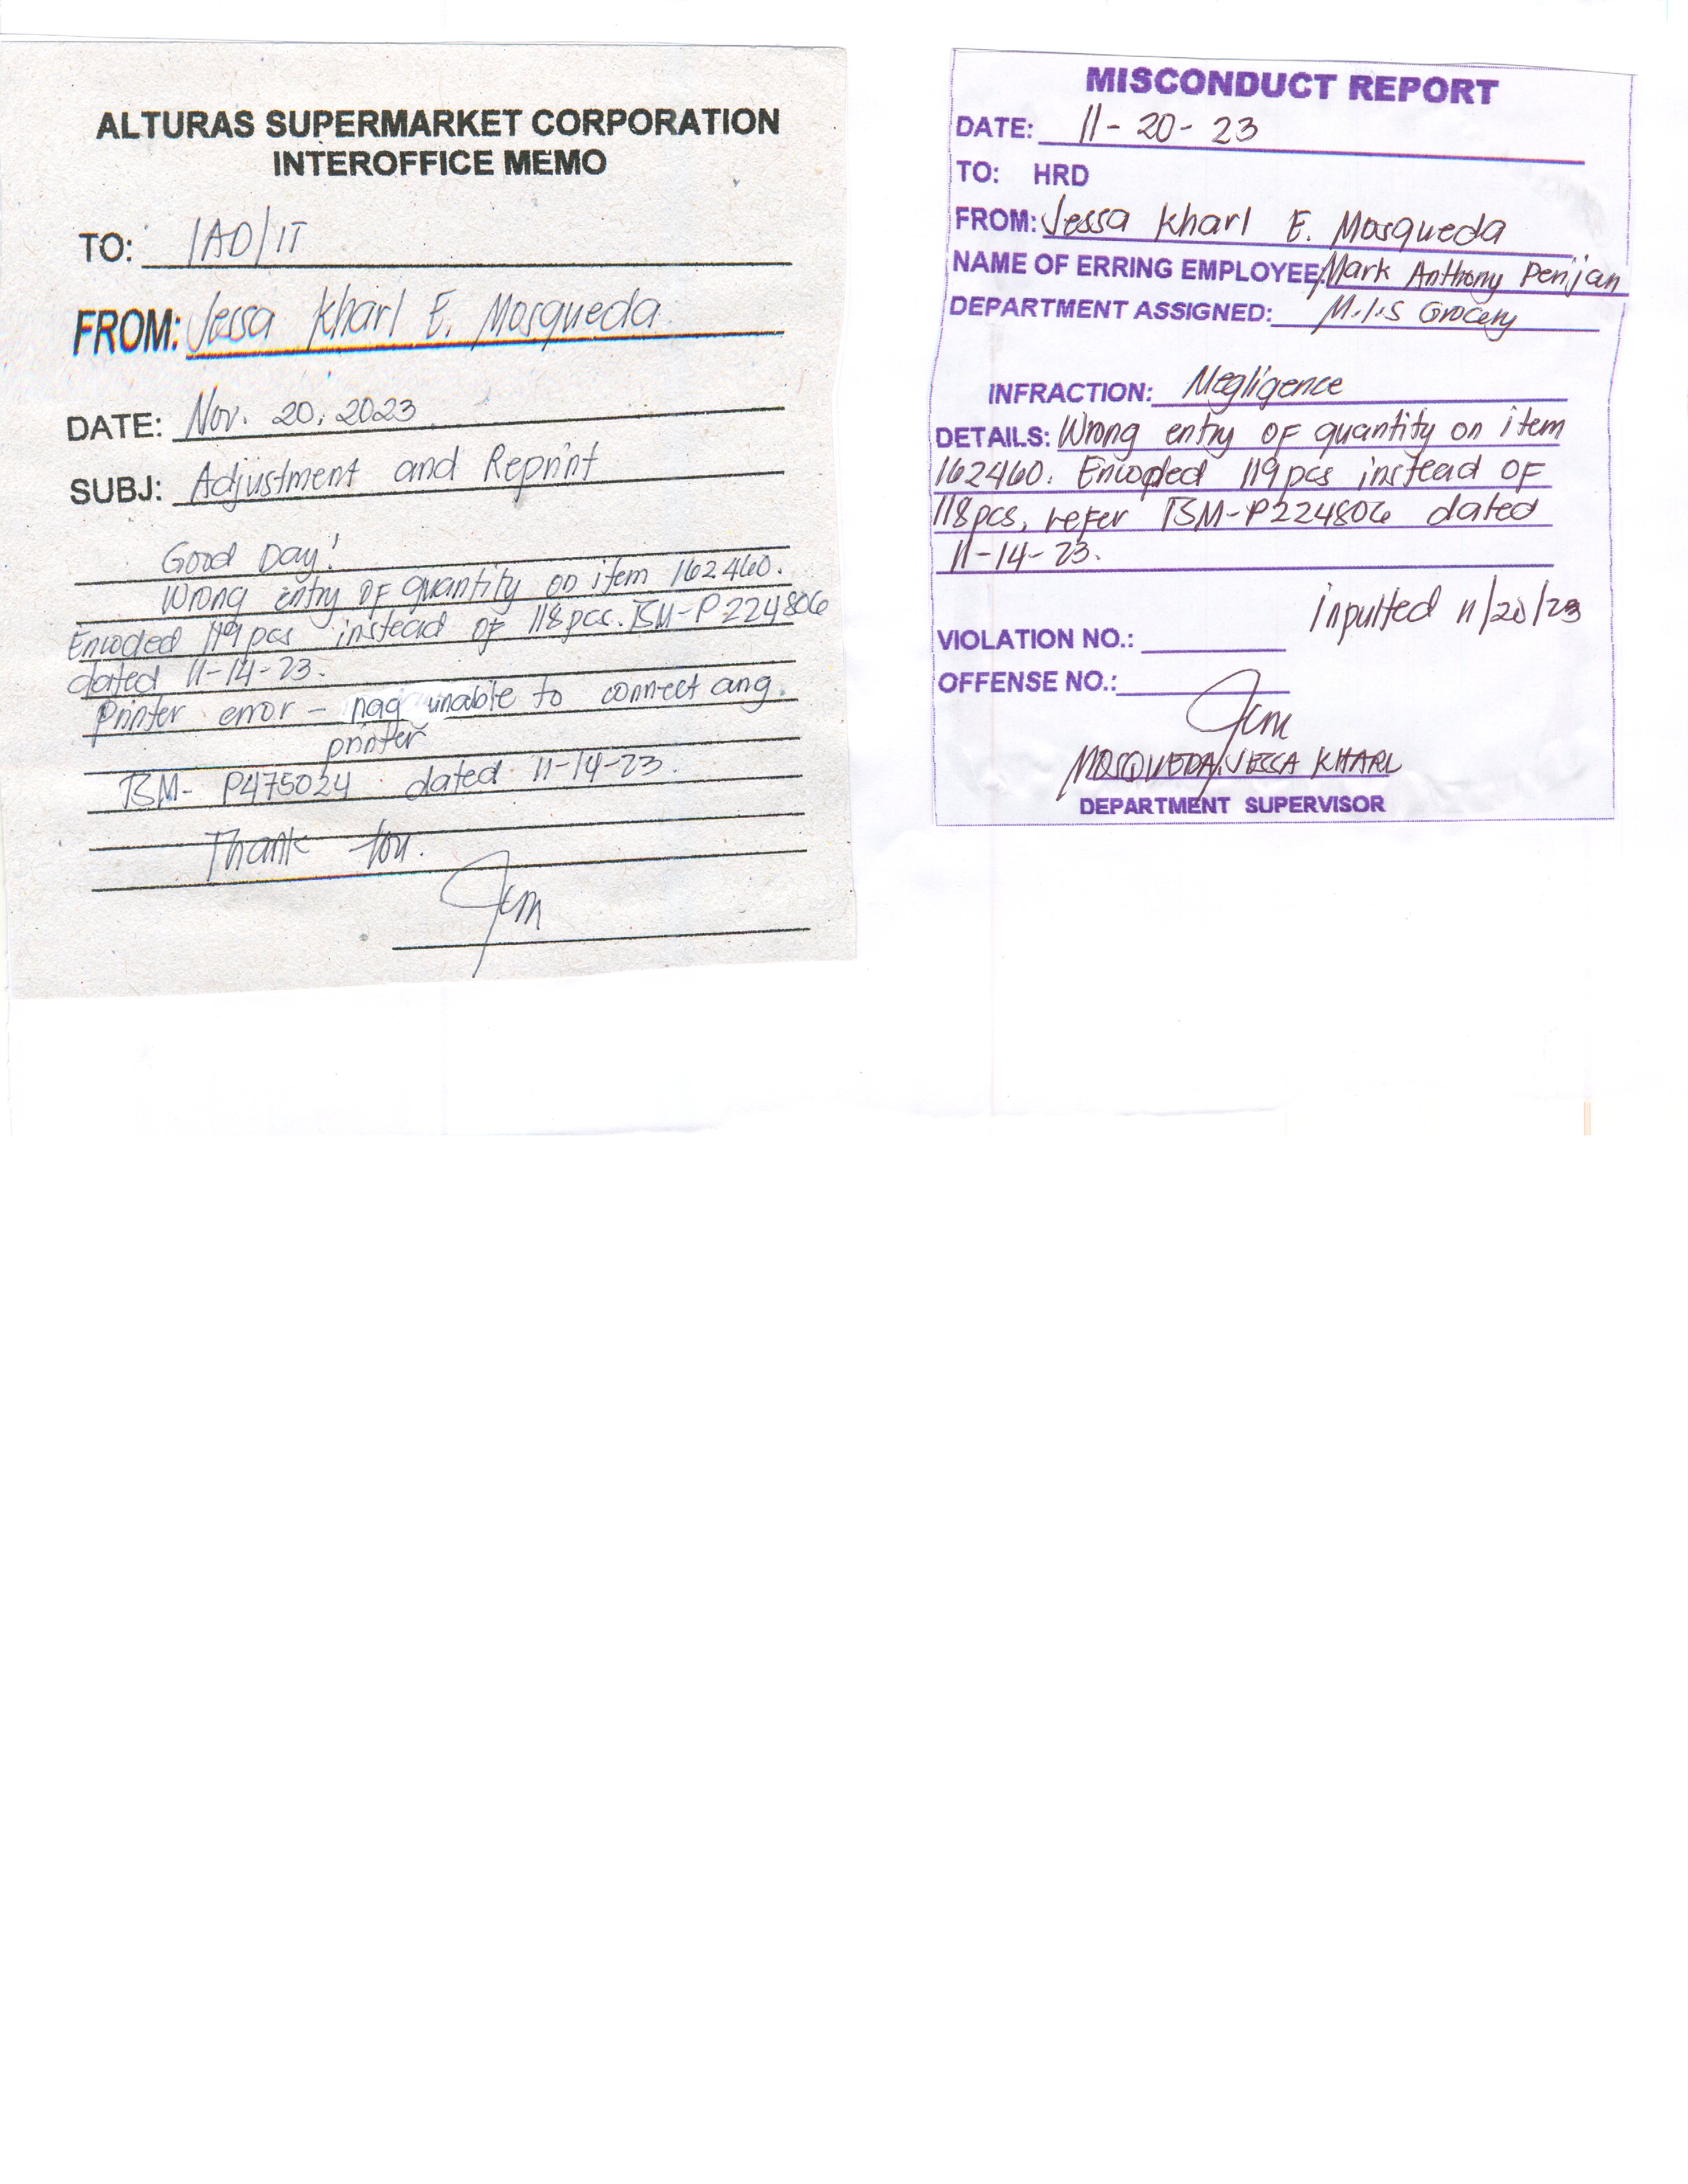 ALTURAS SUPERMARKET CORPORATION
INTEROFFICE MEMO
TO: IAD/IT
FROM: Jessa Kharl E. Mosqueda
DATE: Nov. 20, 2023
SUBJ: Adjustment and Reprint
Good Day!
Wrong entry of quantity on item 162460.
Encoded 119pcs instead of 118pcs. TSM-P224806
dated 11-14-23.
Printer error - nag unable to connect ang
printer
TSM- P475024 dated 11-14-23.
Thank You.
Jem
MISCONDUCT REPORT
DATE: 11-20-23
TO: HRD
FROM: Jessa Kharl E. Mosqueda
NAME OF ERRING EMPLOYEE: Mark Anthony Penjan
DEPARTMENT ASSIGNED: M.I.S Grocery
INFRACTION: Negligence
DETAILS: Wrong entry OF quantity on item
162460. Encoded 119pcs instead OF
118pcs, refer TSM-P224806 dated
11-14-23.
inputted 11/20/23
VIOLATION NO.:
OFFENSE NO.:
Jem
MOSQUEDA, JESSA KHARL
DEPARTMENT SUPERVISOR